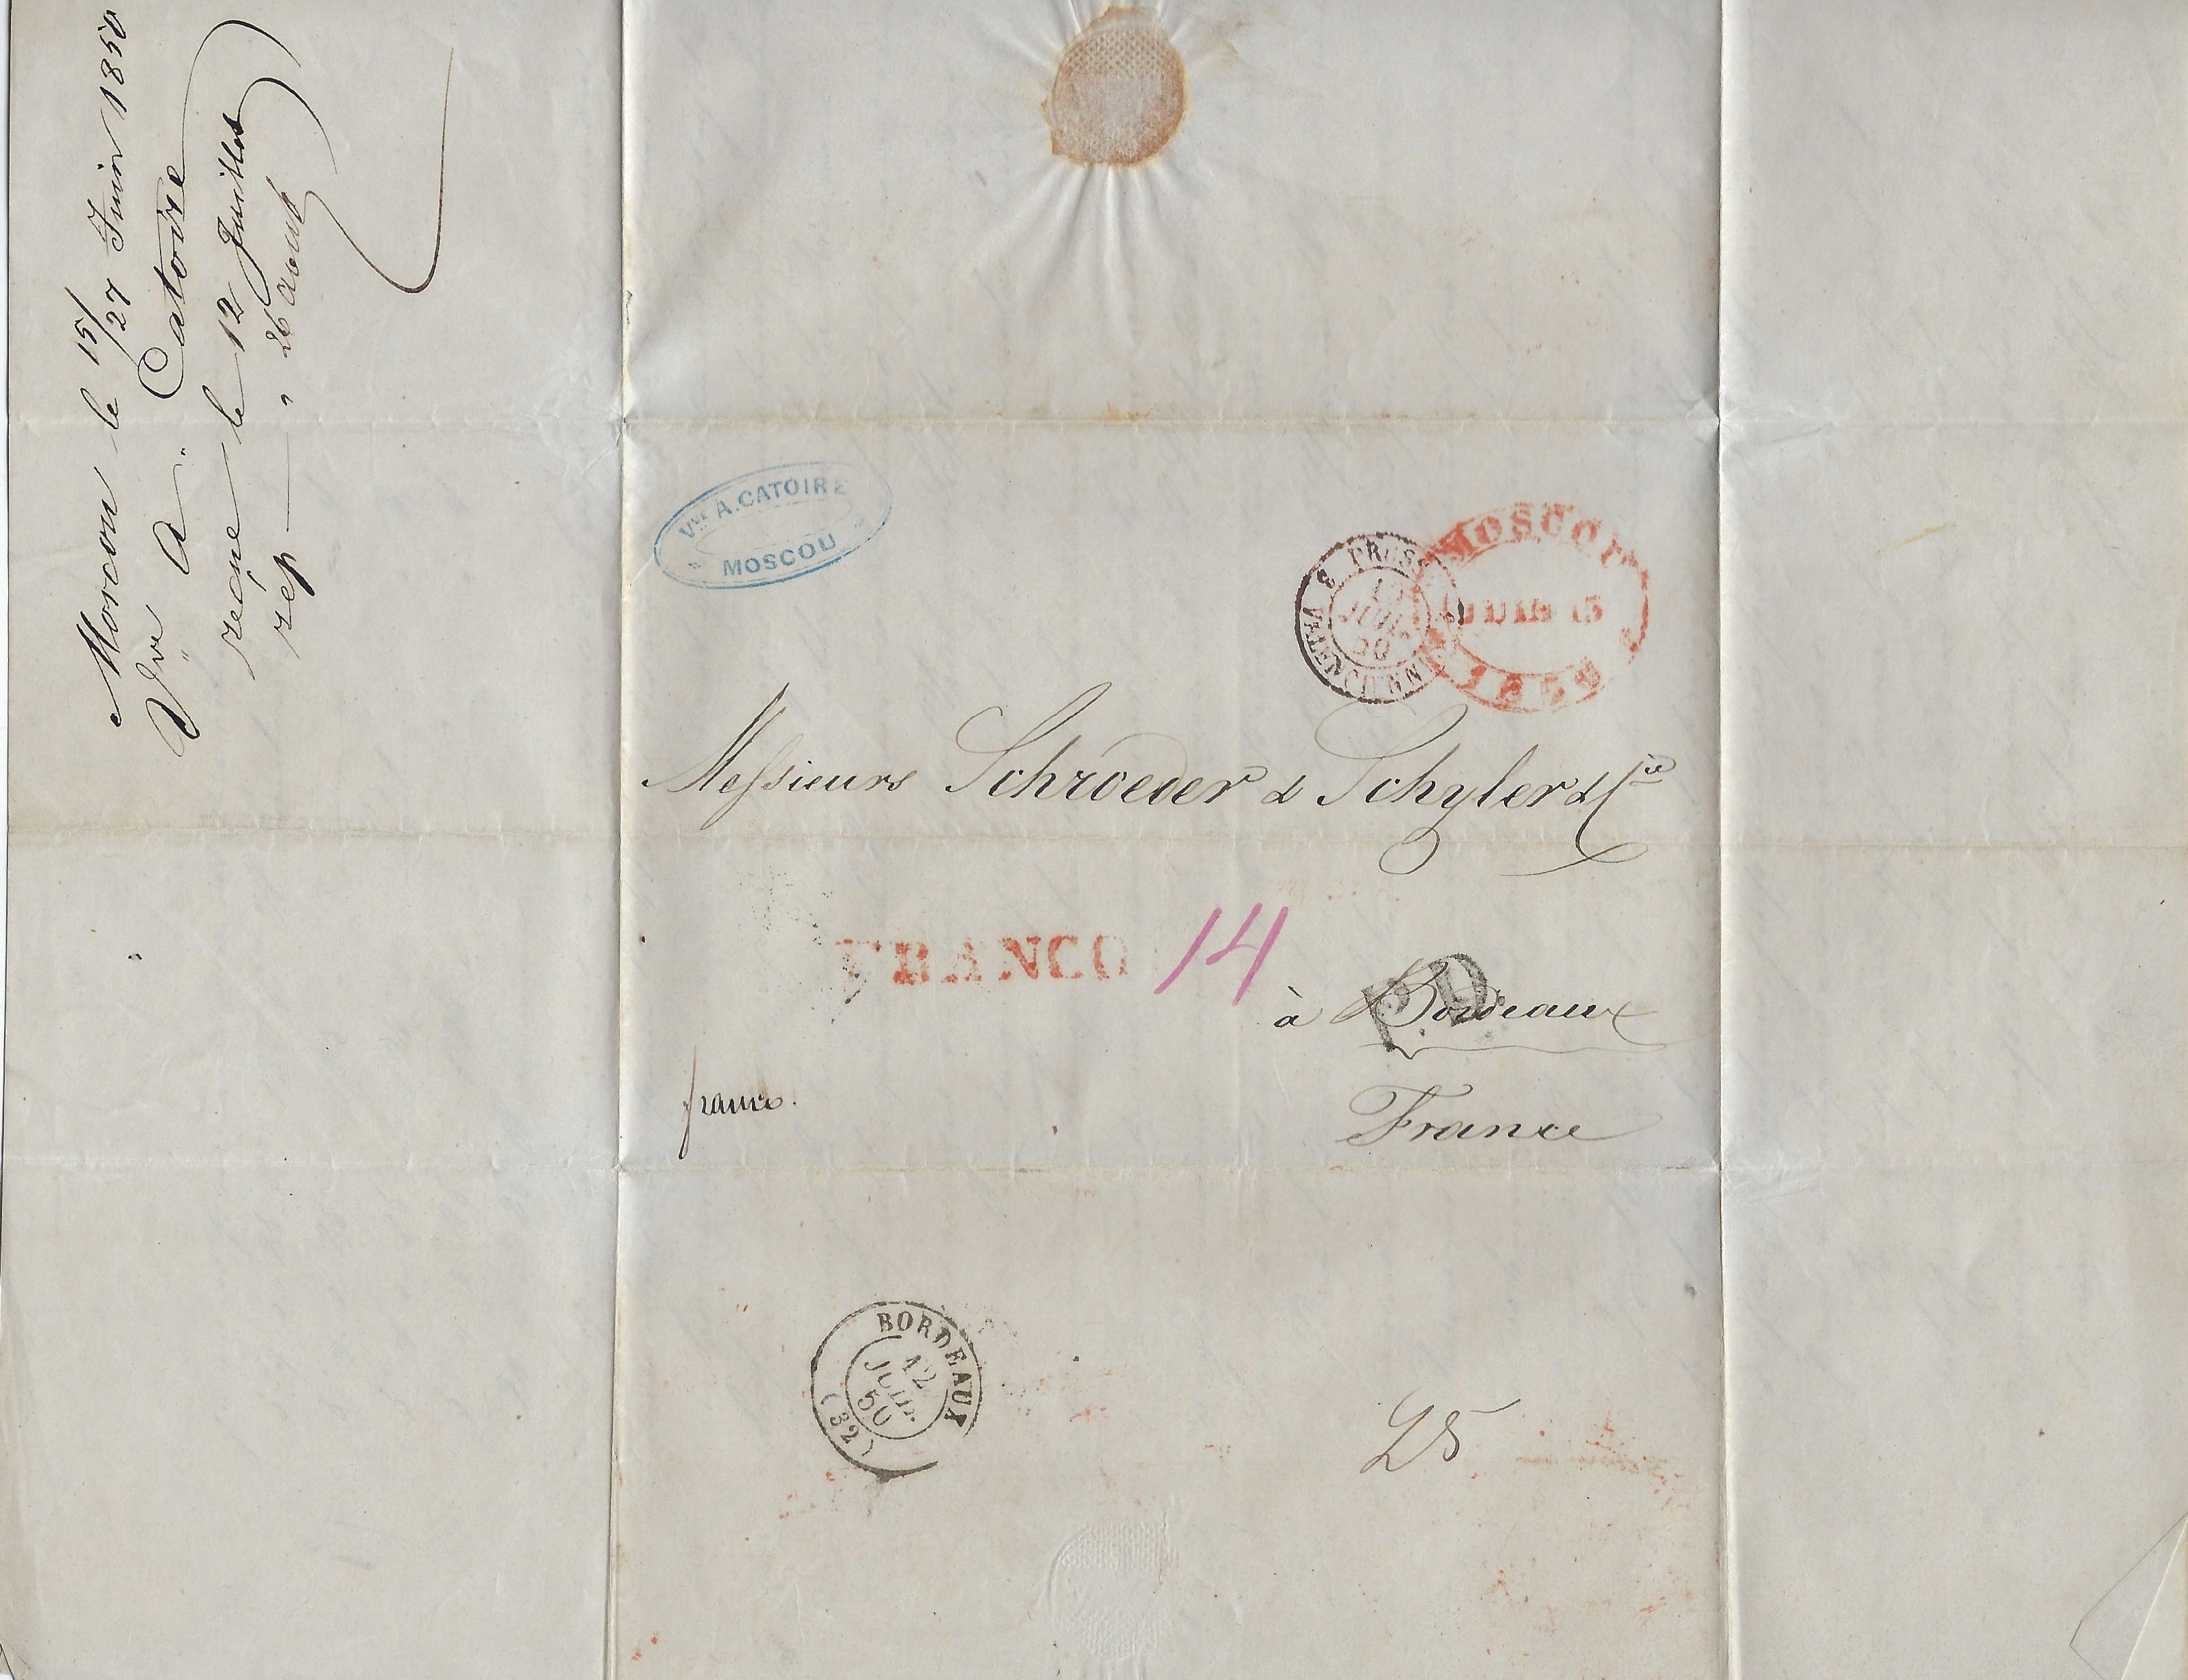 Moscou le 15/27 Juin 1850
Vve A. Catoire
reçue le 12 Juillet
rép — " 26 Aout
Vve A. CATOIRE
MOSCOU
PRUSSE
VALENCIENNES
10
JUIL.
50
MOSCOU
1850
Messieurs Schroeder & Schyler & Cie
FRANCO 14
à Bordeaux
P.D.
franco.
France
BORDEAUX
12
JUIL.
50
(32)
25